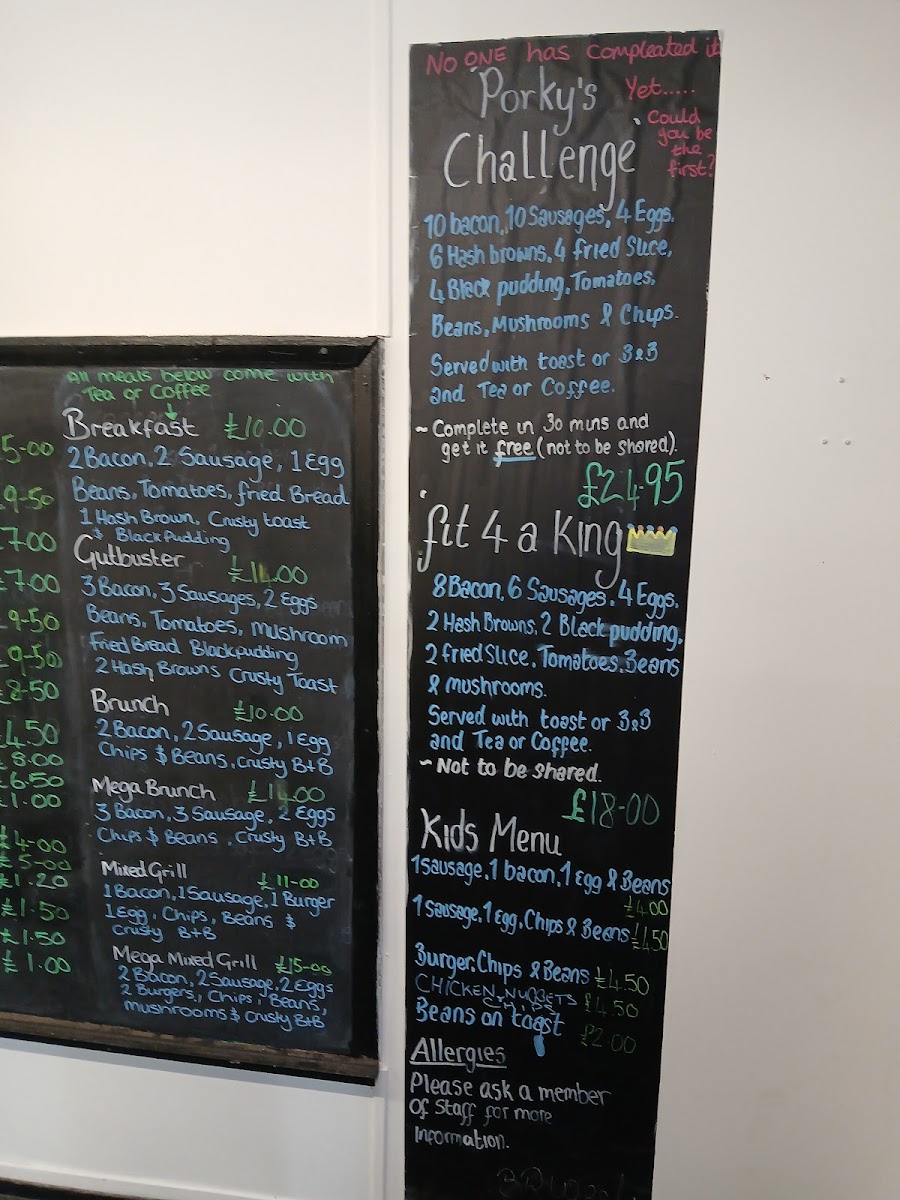 5-00
9-50
7.00
£7.00
9-50
9-50
£8-50
£4.50
£8.00
£6.50
£1.00
£4-00
£5-00
£1.20
£1.50
£1.50
£1.00
All meals below come with
Tea or Coffee
Breakfast £10.00
2 Bacon, 2 Sausage, 1 Egg
Beans, Tomatoes, fried Bread
1 Hash Brown, Crusty toast
& Blackpudding
Gutbuster £14.00
3 Bacon, 3 Sausages, 2 Eggs
Beans, Tomatoes, mushroom
Fried Bread Blackpudding
2 Hash Browns Crusty Toast
Brunch £10.00
2 Bacon, 2 Sausage, 1 Egg
Chips & Beans, crusty B+B
Mega Brunch £14.00
3 Bacon, 3 Sausage, 2 Eggs
Chips & Beans, Crusty B+B
Mixed Grill £11-00
1 Bacon, 1 Sausage, 1 Burger
1 Egg, Chips, Beans &
Crusty B+B
Mega Mixed Grill £15-00
2 Bacon, 2 Sausage, 2 Eggs
2 Burgers, Chips, Beans,
mushrooms & Crusty B+B
NO ONE has compleated it
Yet.....
Could
you be
the
first?
'Porky's
Challenge'
10 bacon, 10 Sausages, 4 Eggs,
6 Hash browns, 4 fried Slice,
4 Black pudding, Tomatoes,
Beans, Mushrooms & Chips.
Served with toast or B&B
and Tea or Coffee.
~ Complete in 30 mins and
get it free (not to be shared).
£24.95
fit 4 a King
8 Bacon, 6 Sausages, 4 Eggs,
2 Hash Browns, 2 Black pudding,
2 fried Slice, Tomatoes, Beans
& mushrooms.
Served with toast or B&B
and Tea or Coffee.
~ Not to be shared.
£18-00
Kids Menu
1 sausage, 1 bacon, 1 Egg & Beans
£4.00
1 sausage, 1 egg, Chips & Beans £4.50
Burger, Chips & Beans £4.50
CHICKEN NUGGETS
CHIPS £4.50
Beans on toast £2.00
Allergies
Please ask a member
Of Staff for more
Information.